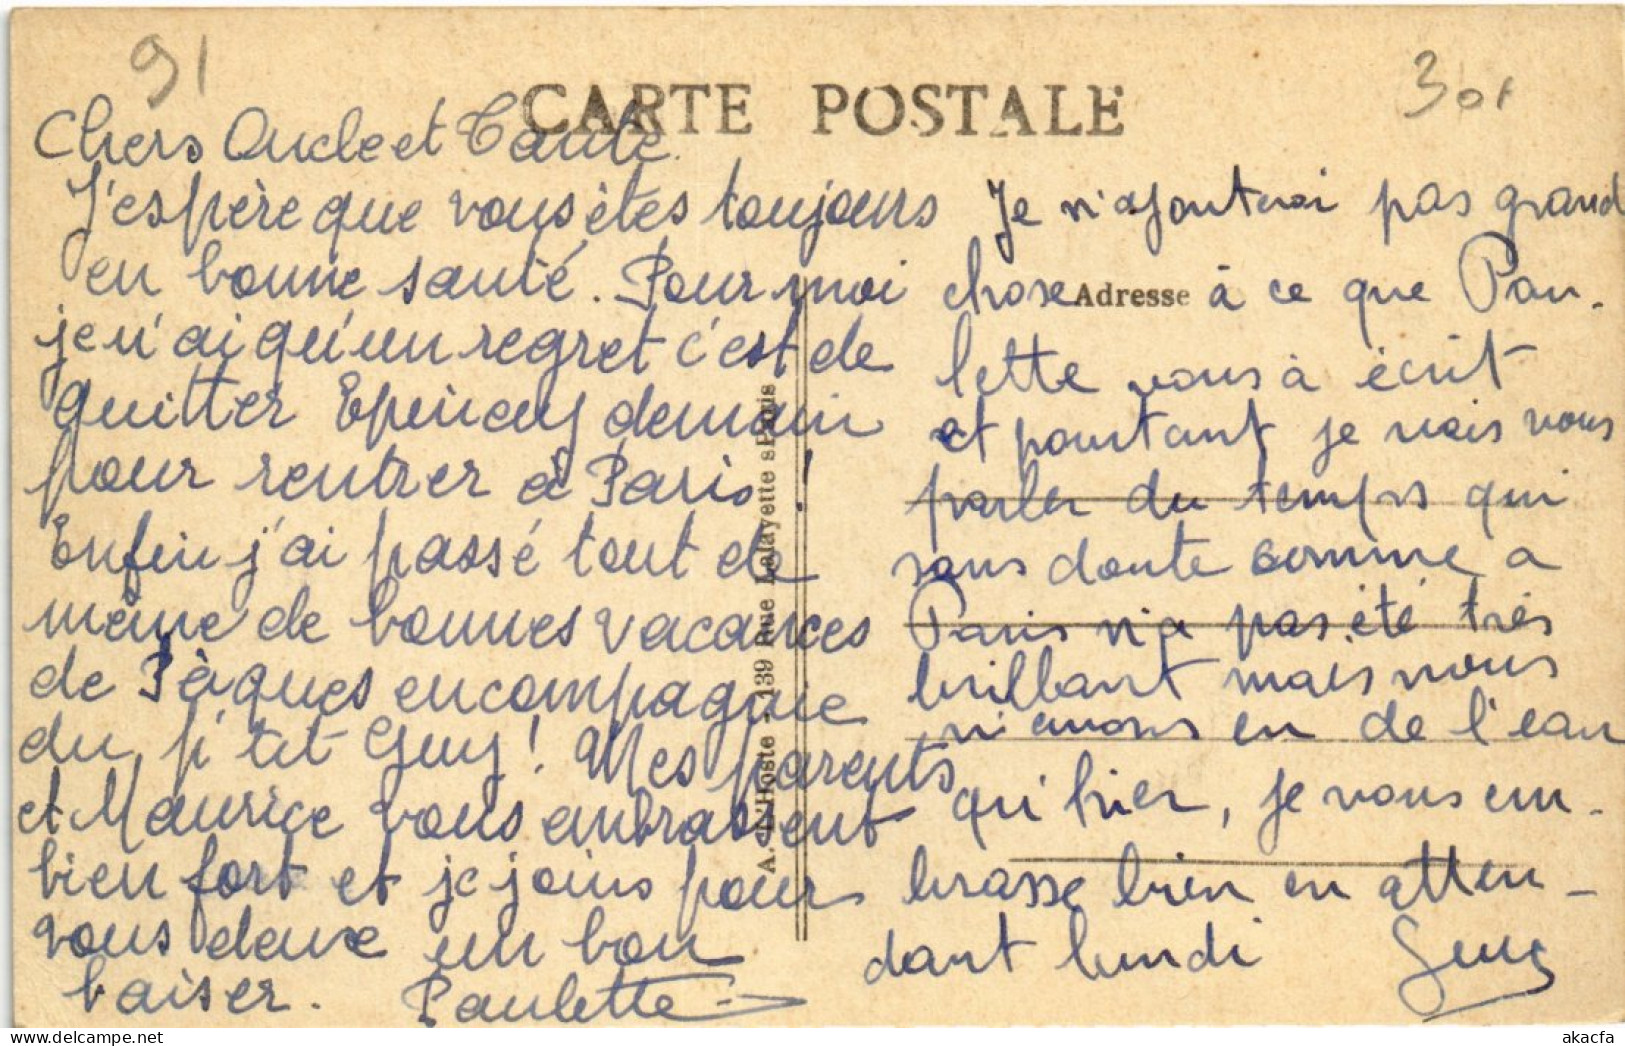 91
301
CARTE POSTALE
Chers Oncle et Tante.
J'espère que vous êtes toujours
en bonne santé. Pour moi
je n'ai qu'un regret c'est de
quitter Epincey demain
pour rentrer à Paris !
Enfin j'ai passé tout de
même de bonnes vacances
de Pâques en compagnie
du p'tit Guy ! Mes parents
et Maurice vous embrassent
bien fort et je joins pour
vous deux un bon
baiser. Paulette
A. L'Hoste - 139 Rue Lafayette s Paris
Adresse
Je n'ajouterai pas grand
chose à ce que Pau-
lette vous à écrit
et pourtant je vais vous
parler du temps qui
sans doute comme a
Paris n'a pas été très
brillant mais nous
n'avons eu de l'eau
qu'hier, je vous em-
brasse bien en atten-
dant lundi Guy
akacfa